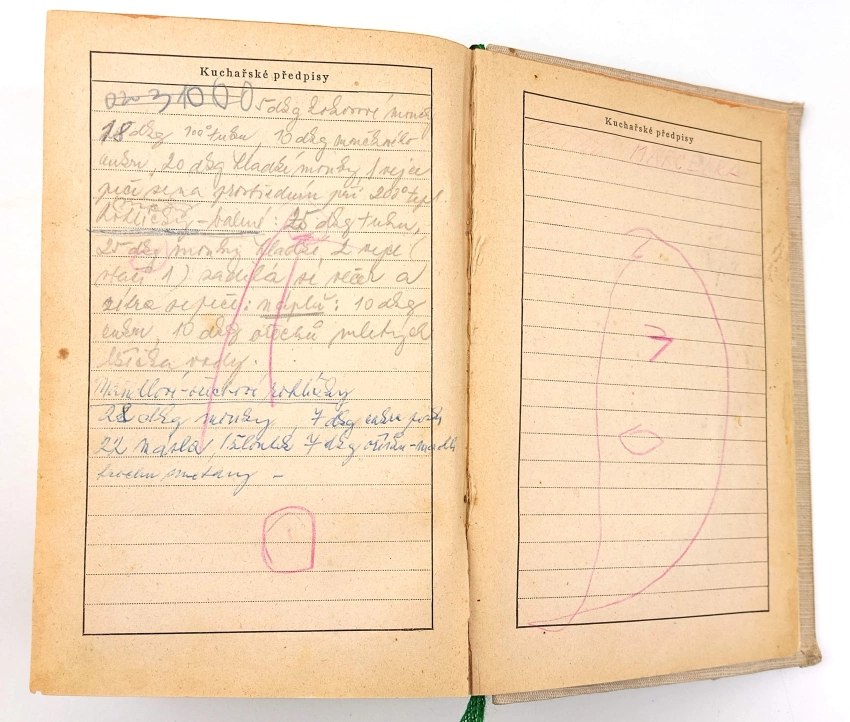 Kuchařské předpisy
5 dkg kokosové
18 dkg 100% tuku, 10 dkg moučkového
cukru, 20 dkg hladké mouky 1 vejce
peče se na prostředním při 200°
: 25 dkg tuku,
25 dkg mouky hladké 2 vejce (
stačí 1) zadělá se večer a
zítra se peče: náplň: 10 dkg
cukru, 10 dkg ořechů mletých
lžička vody.
rohlíčky
28 dkg mouky, 7 dkg cukru
22 másla, 7 dkg
trochu smetany –
Kuchařské předpisy